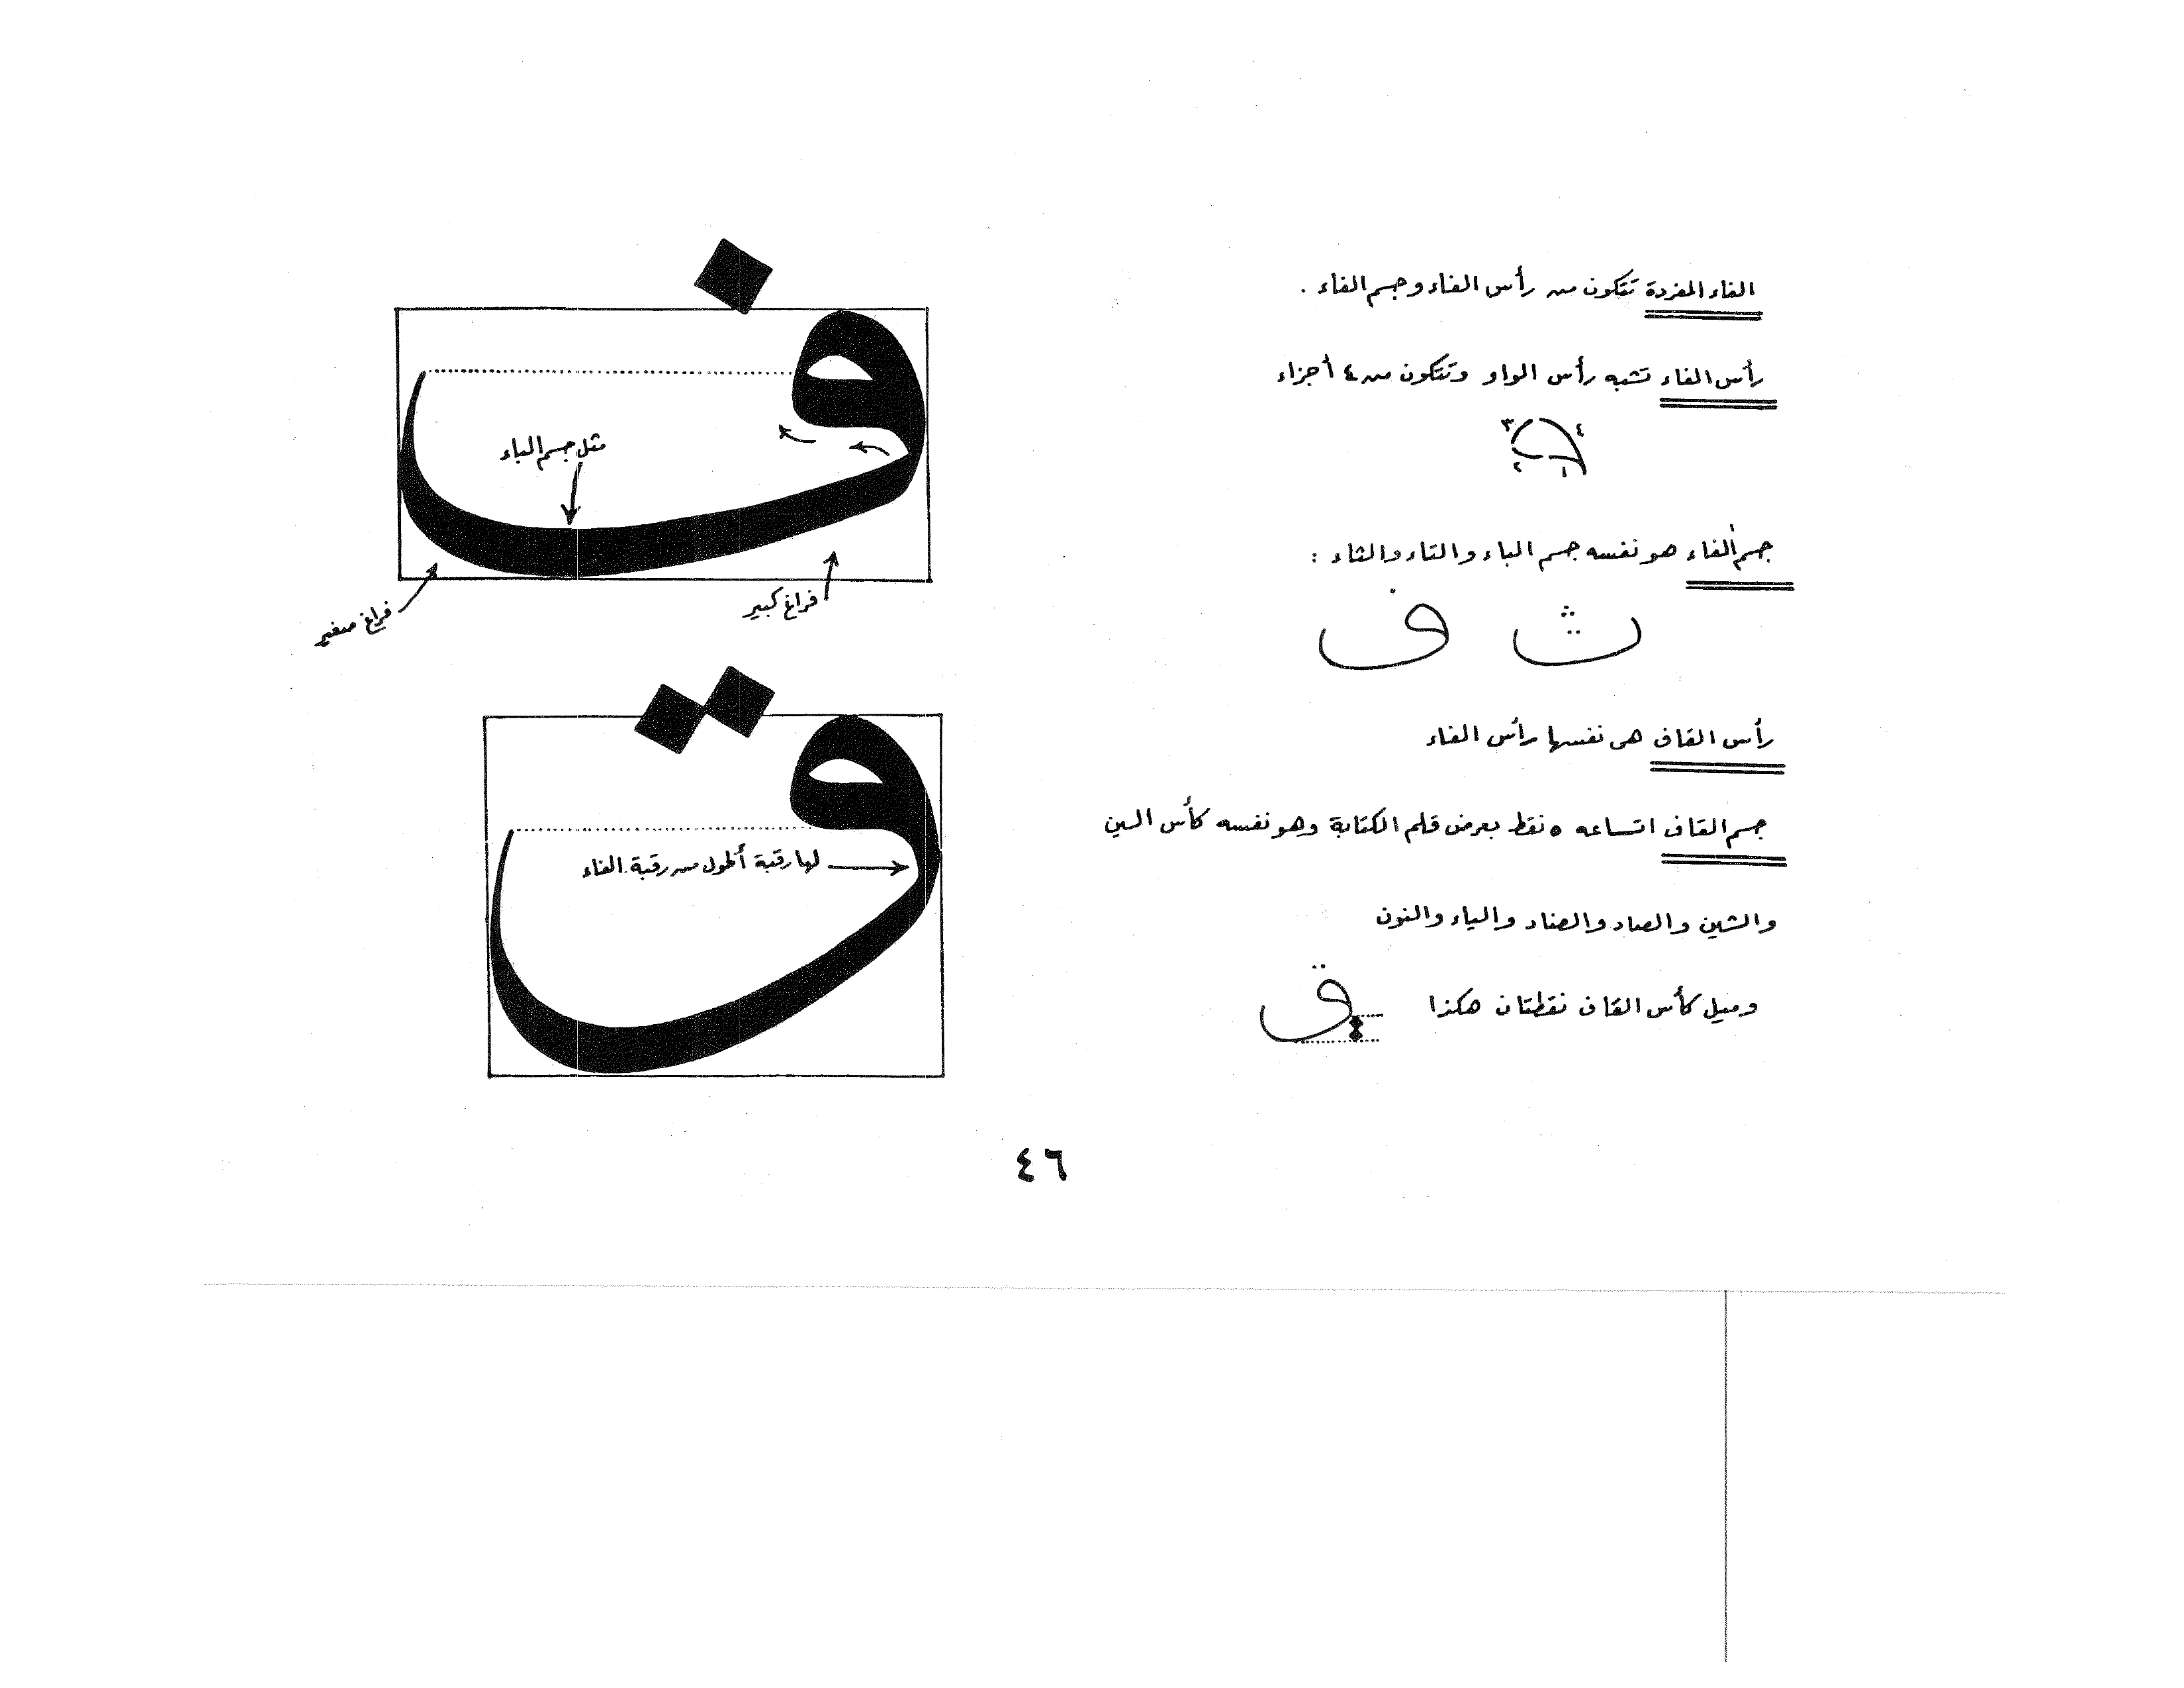 الفاء المفردة تتكون من رأس الفاء وجسم الفاء .
رأس الفاء تشبه رأس الواو وتتكون من ٤ أجزاء
٣ ٤
٢ ١
جسم الفاء هو نفسه جسم الباء والتاء والثاء :
ث ف
رأس القاف هى نفسها رأس الفاء
جسم القاف اتساعه ٥ نقط بعرض قلم الكتابة وهو نفسه كأس السين
والشين والصاد والضاد والياء والنون
وميل كأس القاف نقطتان هكذا ق
ف
مثل جسم الباء
فراغ كبير
فراغ صغير
ق
لها رقبة أطول من رقبة الفاء
٤٦